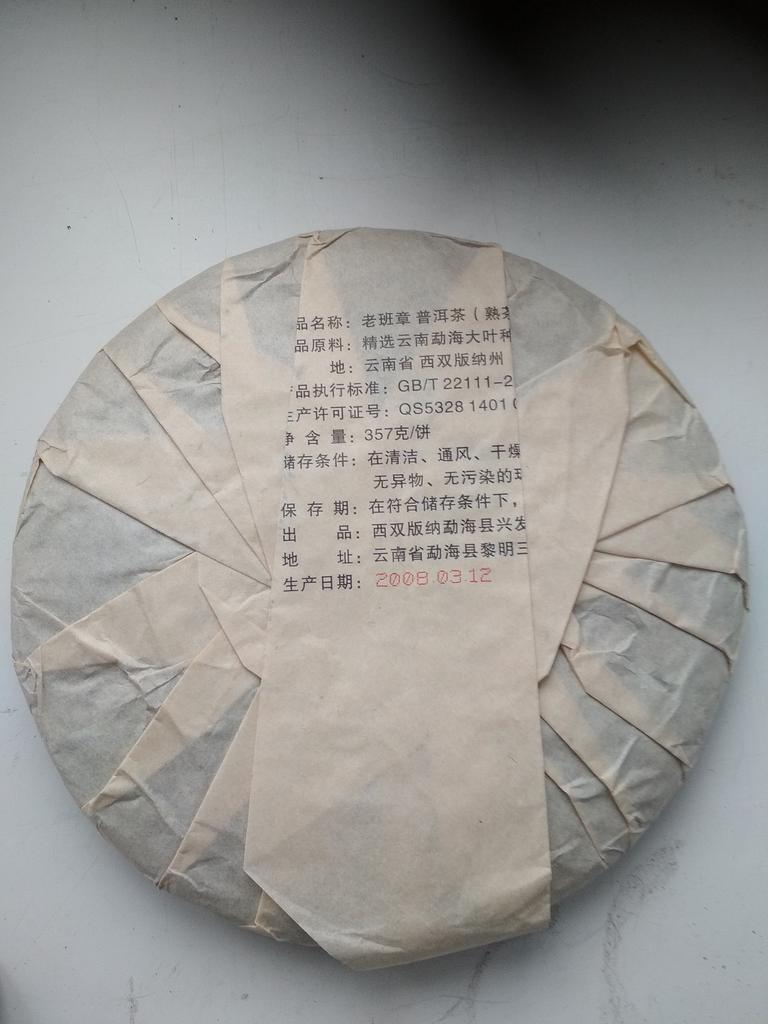 品名称：老班章 普洱茶（熟
品原料：精选云南勐海大叶种
地：云南省 西双版纳州
品执行标准：GB/T 22111-2
生产许可证号：QS5328 1401
净 含 量：357克/饼
储存条件：在清洁、通风、干燥
无异物、无污染的
保 存 期：在符合储存条件下，
出 品：西双版纳勐海县兴发
地 址：云南省勐海县黎明三
生产日期：2008.03.12